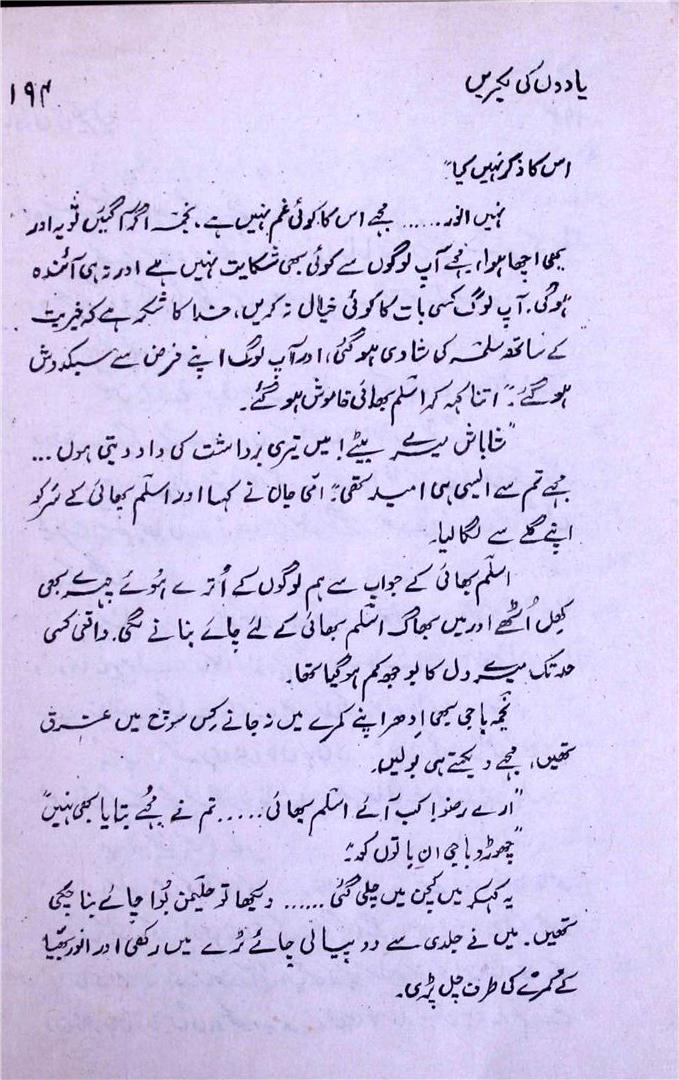 یادوں کی لکیریں
۱۹۴
اس کا ذکر نہیں کیا"
نہیں انور...... مجھے اس کا کوئی غم نہیں ہے، نجمہ اگر آگئیں تو یہ اور
بھی اچھا ہوا، مجھے آپ لوگوں سے کوئی بھی شکایت نہیں ہے اور نہ ہی آئندہ
ہوگی۔ آپ لوگ کسی بات کا کوئی خیال نہ کریں، خدا کا شکر ہے کہ خیریت
کے ساتھ سلمہ کی شادی ہو گئی، اور آپ لوگ اپنے فرض سے سبکدوش
ہو گئے۔" اتنا کہہ کر اسلم بھائی خاموش ہو گئے۔
"شاباش میرے بیٹے! میں تیری برداشت کی داد دیتی ہوں ...
مجھے تم سے ایسی ہی امید تھی"۔ امّی جان نے کہا اور اسلم بھائی کے سر کو
اپنے گلے سے لگا لیا۔
اسلم بھائی کے جواب سے ہم لوگوں کے اُترے ہوئے چہرے بھی
کھل اُٹھے اور میں بھاگ اسلم بھائی کے لئے چائے بنانے لگی۔ واقعی کسی
حد تک میرے دل کا بوجھ کم ہو گیا تھا۔
نجمہ باجی بھی اِدھر اپنے کمرے میں نہ جانے کس سوچ میں غرق
تھیں، مجھے دیکھتے ہی بولیں۔
"ارے رضو! کب آئے اسلم بھائی..... تم نے مجھے بتایا بھی نہیں"
"چھوڑو باجی ان باتوں کو"۔
یہ کہہ کر میں کچن میں چلی گئی ...... دیکھا تو حلیمن بُوا چائے بنا چکی
تھیں۔ میں نے جلدی سے دو پیالی چائے ٹرے میں رکھی اور انور بھیّا
کے کمرے کی طرف چل پڑی۔